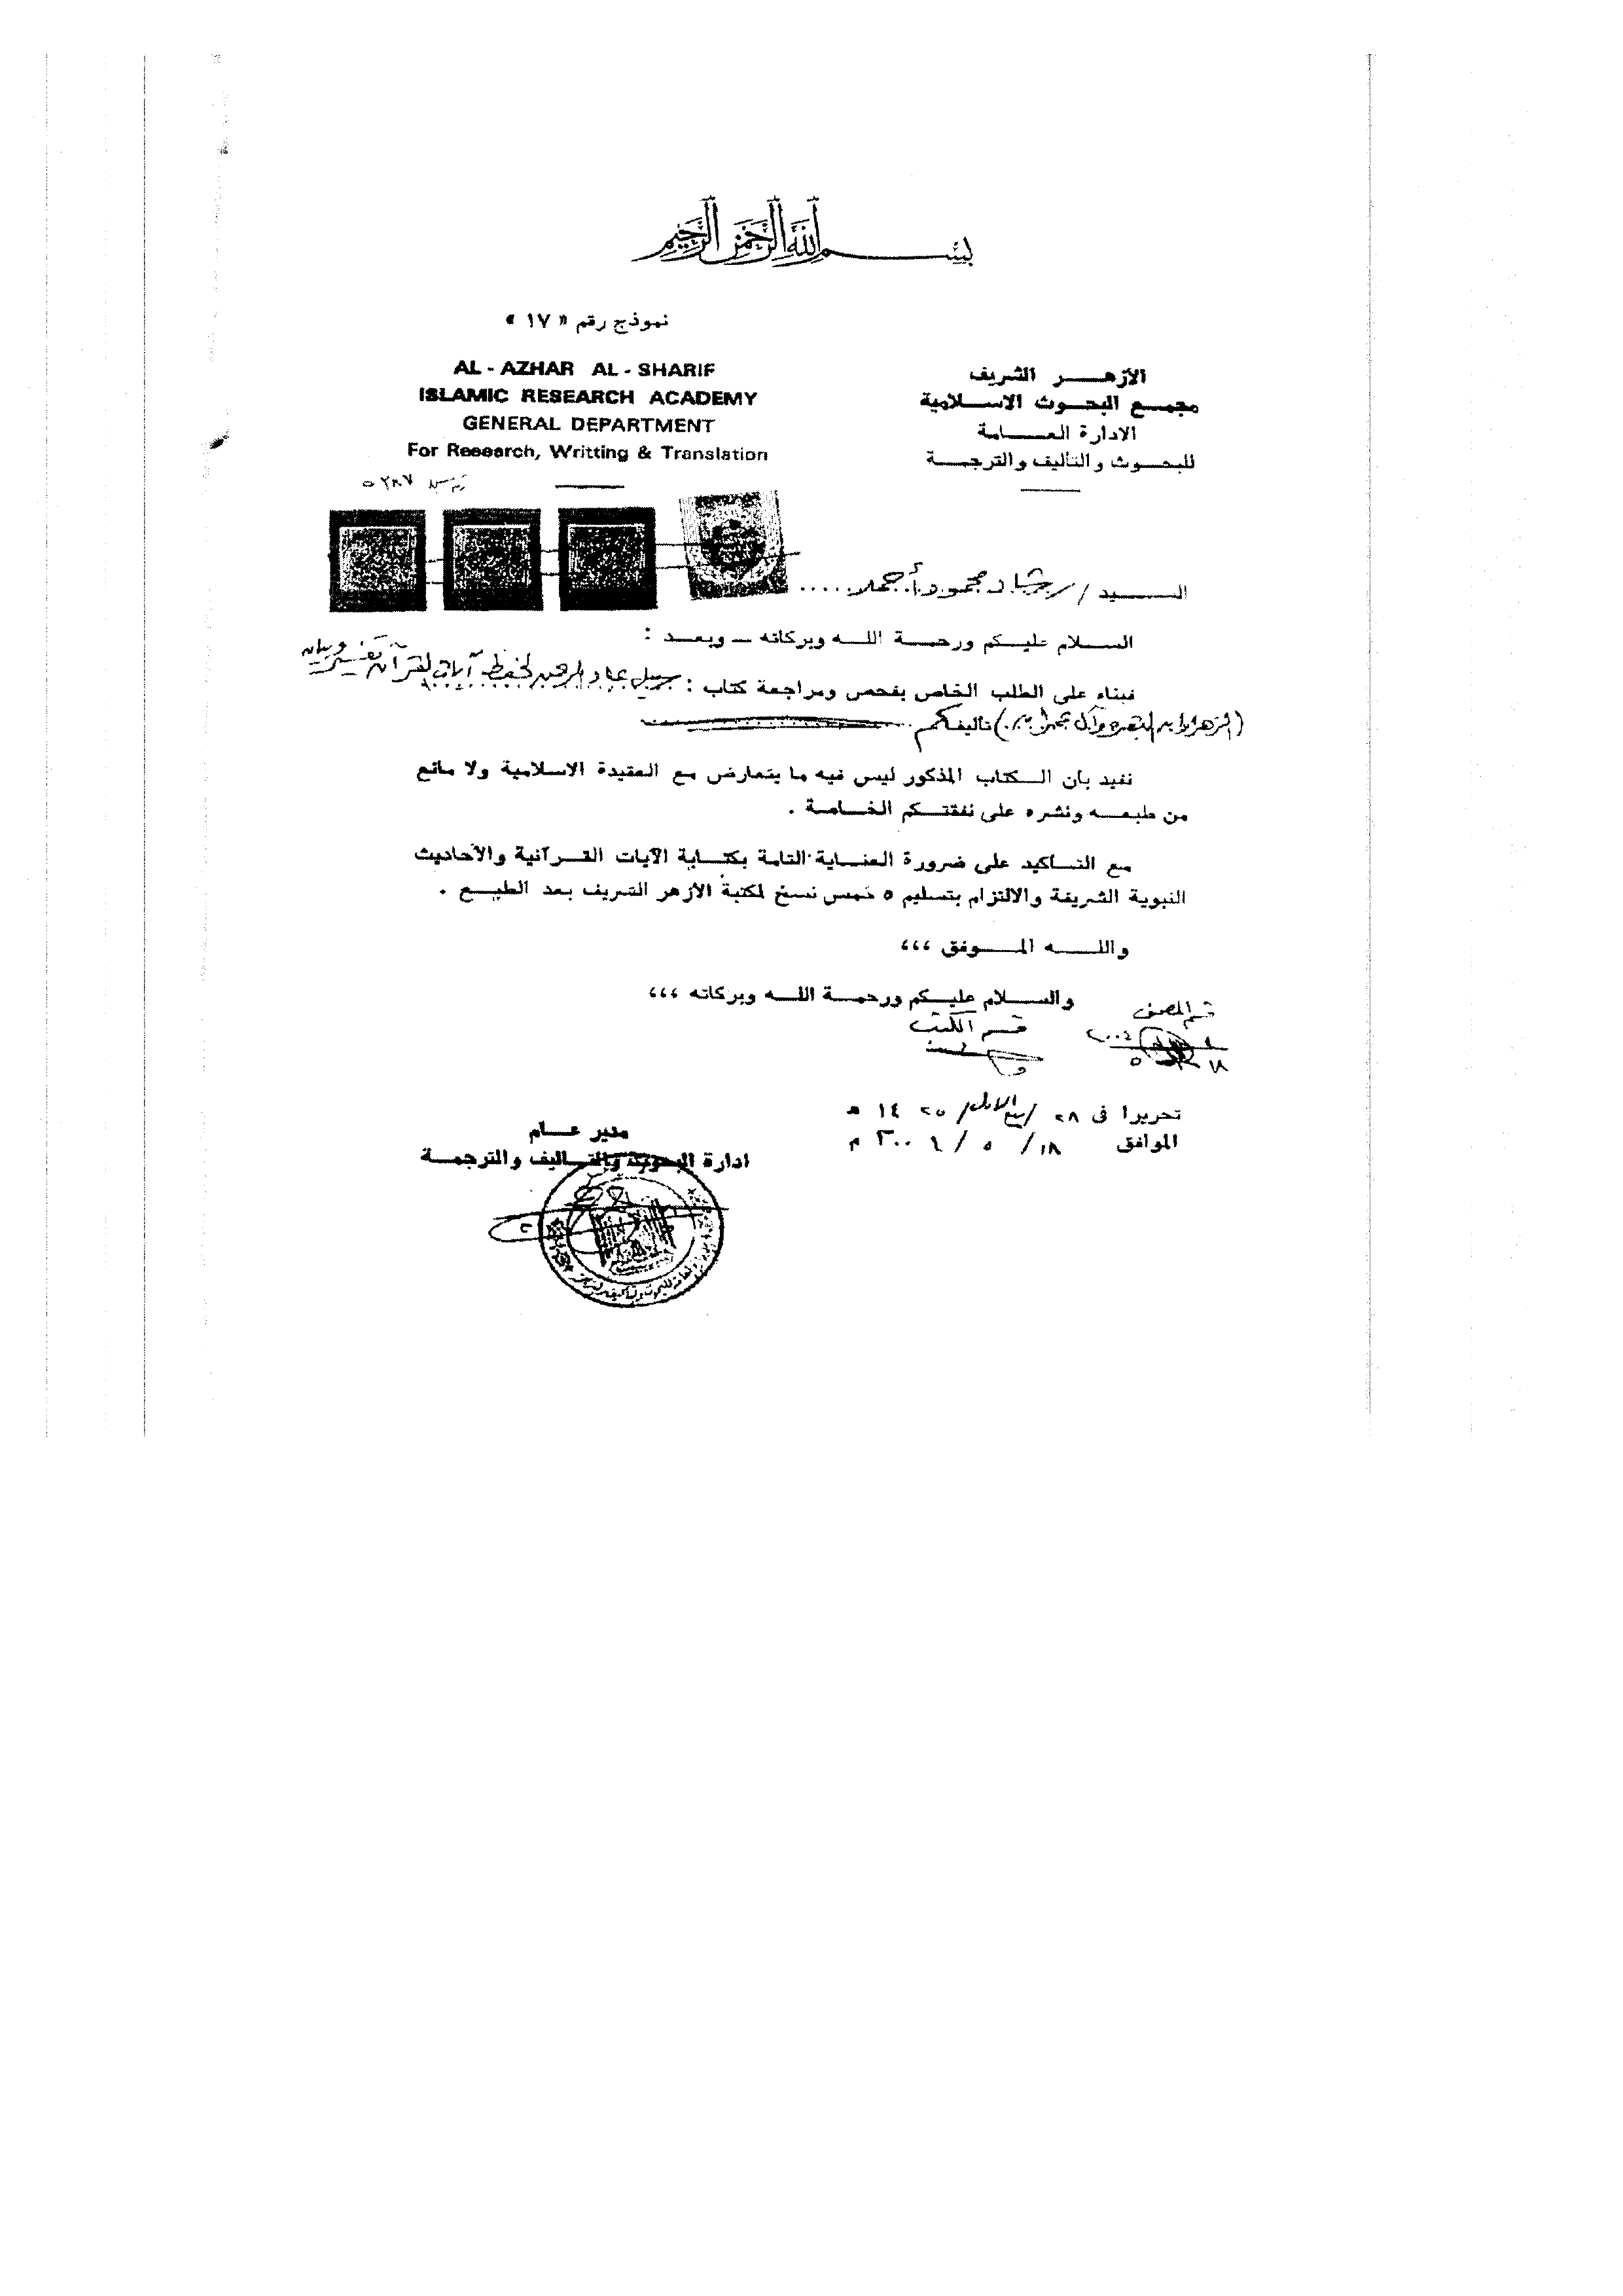 بسم الله الرحمن الرحيم
نموذج رقم « ١٧ »
الأزهـــر الشريف
مجمـــع البحـــوث الاســـلامية
الادارة العـــامة
للبحـــوث والتأليف والترجمـــة
AL - AZHAR AL - SHARIF
ISLAMIC RESEARCH ACADEMY
GENERAL DEPARTMENT
For Research, Writting & Translation
٥٢٨٧
الســـيد / رشاد محمود أحمد .....
السـلام عليـكم ورحمـة اللـه وبركاته ــ وبعـد :
فبناء على الطلب الخاص بفحص ومراجعة كتاب : سبيل عباد الرحمن لحفظ آيات القرآن تفسير وبيان
(الزهراوين البقرة وآل عمران) تأليفكم
نفيد بأن الـكتاب المذكور ليس فيه ما يتعارض مع العقيدة الاسلامية ولا مانع
من طبعـه ونشره على نفقتـكم الخـاصة .
مع التـاكيد على ضرورة العنـاية التامة بكتـابة الآيات القـرآنية والأحاديث
النبوية الشريفة والالتزام بتسليم ٥ خمس نسخ لمكتبة الأزهر الشريف بعد الطبـع .
واللـــه المـــوفق ،،،
والســـلام عليـكم ورحمـة اللـه وبركاته ،،،
قسم الكتب
١٨ ٥ ٢٠٠٤
تحريرا فى ٢٨ / ربيع الأول / ١٤٢٥ هـ
الموافق ١٨ / ٥ / ٢٠٠٤ م
مدير عـــام
ادارة البحوث والتـأليف والترجمـــة